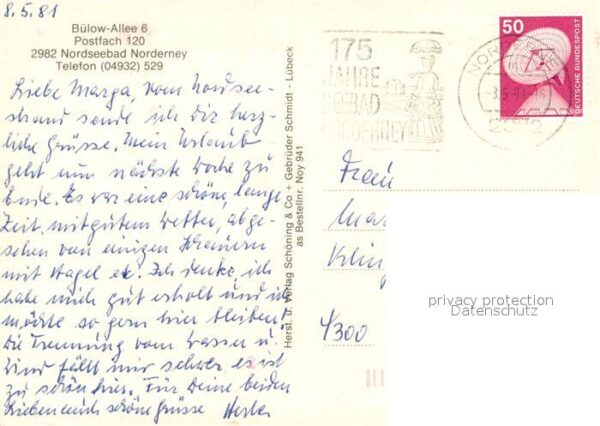 8.5.81
Bülow-Allee 6
Postfach 120
2982 Nordseebad Norderney
Telefon (04932) 529
Liebe Marga, vom Nordsee-
strand sende ich Dir herz-
liche Grüsse. Mein Urlaub
geht nun nächste Woche zu
Ende. Es war eine schöne, lange
Zeit mit gutem Wetter, abge-
sehen von einigen Schauern
mit Hagel etc. Ich denke, ich
habe mich gut erholt und ich
möchte so gern hier bleiben!
Die Trennung vom Wasser u.
Wind fällt mir schwer, es ist
zu schön hier. Für Deine beiden
Lieben auch schöne Grüsse
Herst. u. Verlag Schöning & Co + Gebrüder Schmidt - Lübeck
as Bestellnr. Noy 941
175
JAHRE
SEEBAD
NORDERNEY
50
DEUTSCHE BUNDESPOST
Frau
Mar
Kling
4300
privacy protection
Datenschutz